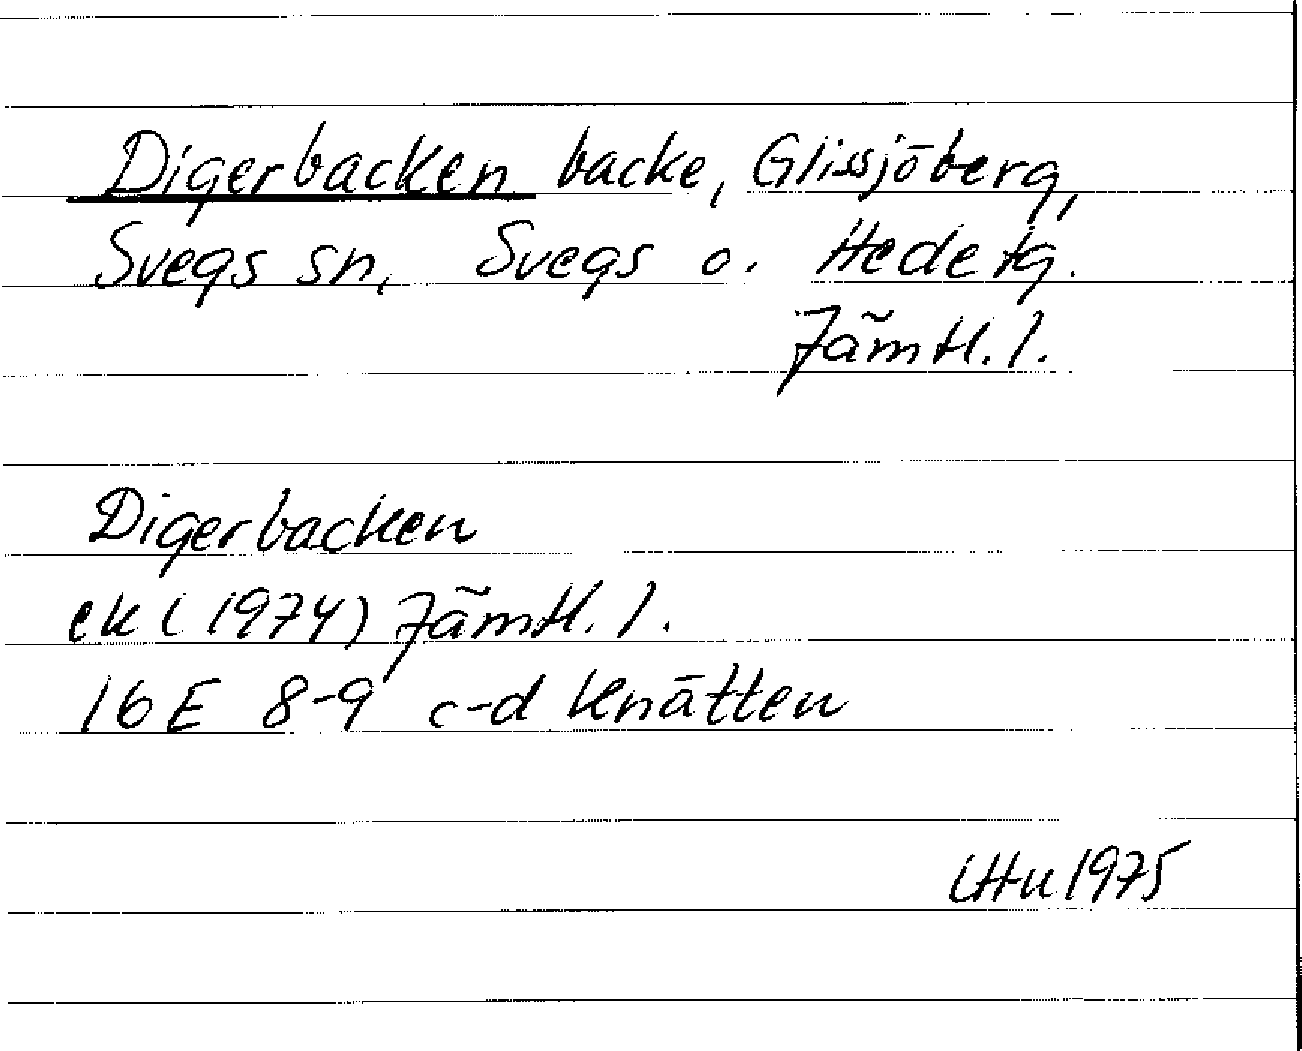 Digerbacken backe, Glissjöberg,
Svegs sn, Svegs o. Hede tg.
Jämtl. l.
Digerbacken
ek (1974) Jämtl. l.
16E 8-9 c-d Knätten
LHu 1975